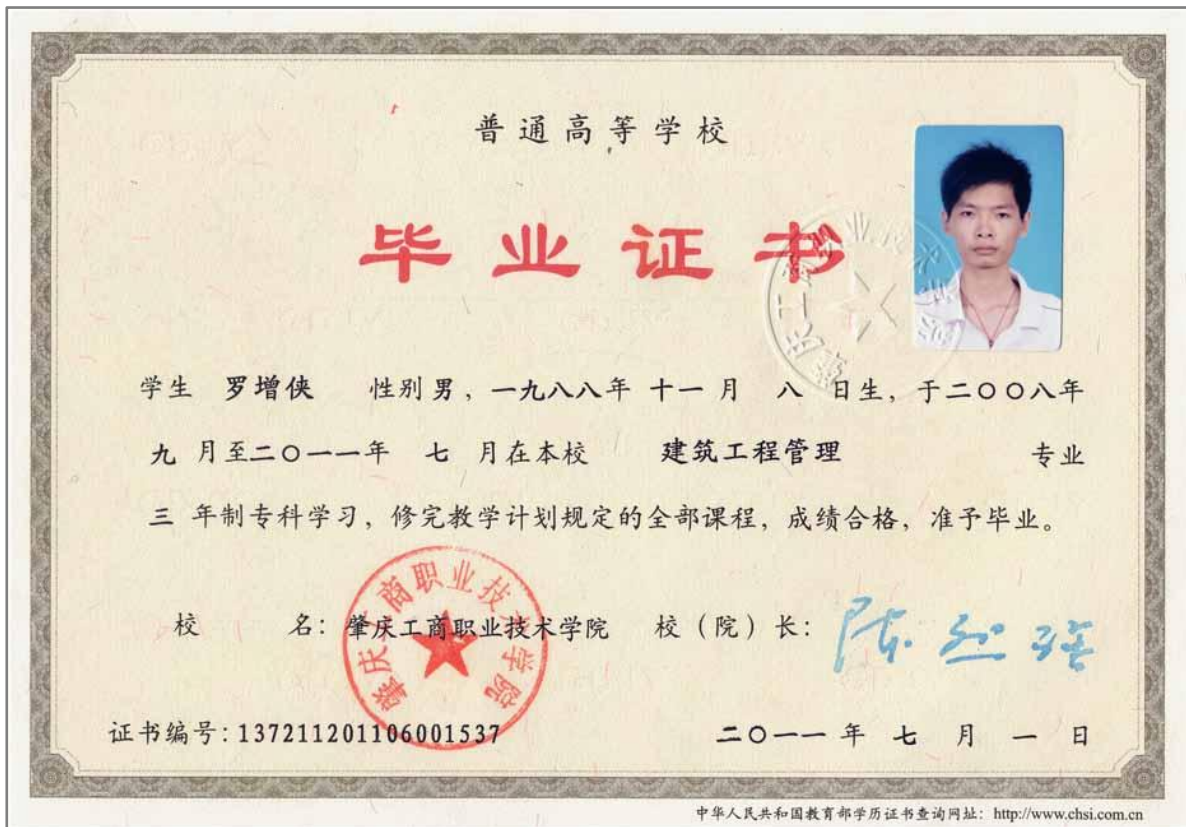 普通高等学校
毕业证书
学生 罗增侠 性别男，一九八八年 十一 月 八 日生，于二〇〇八年
九 月至二〇一一年 七 月在本校 建筑工程管理 专业
三 年制专科学习，修完教学计划规定的全部课程，成绩合格，准予毕业。
校 名：肇庆工商职业技术学院 校（院）长：
肇庆工商职业技术学院
证书编号：137211201106001537
二〇一一 年 七 月 一 日
中华人民共和国教育部学历证书查询网址：http://www.chsi.com.cn